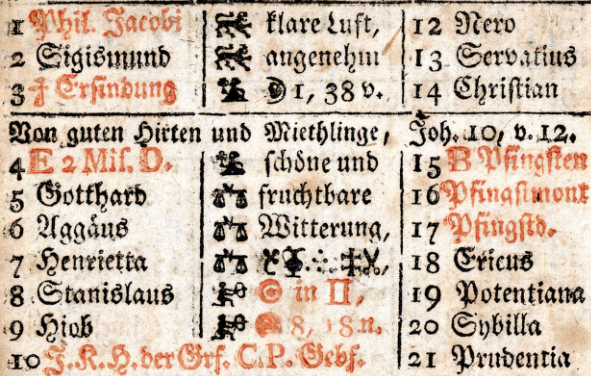 1 Phil. Jacobi klare Luft, 12 Nero
2 Sigismund angenehm 13 Servatius
3 † Erfindung ☽ 1, 38 v. 14 Christian
Von guten Hirten und Miethlinge, Joh. 10, v. 12.
4 E 2 Mis. D. schöne und 15 B Pfingsten
5 Gotthard fruchtbare 16 Pfingstmont
6 Aggäus Witterung, 17 Pfingstd.
7 Henrietta 18 Ericus
8 Stanislaus in II, 19 Potentiana
9 Hiob 8, 18 n. 20 Sybilla
10 J. K. H. der Grf. C. P. Gebf. 21 Prudentia